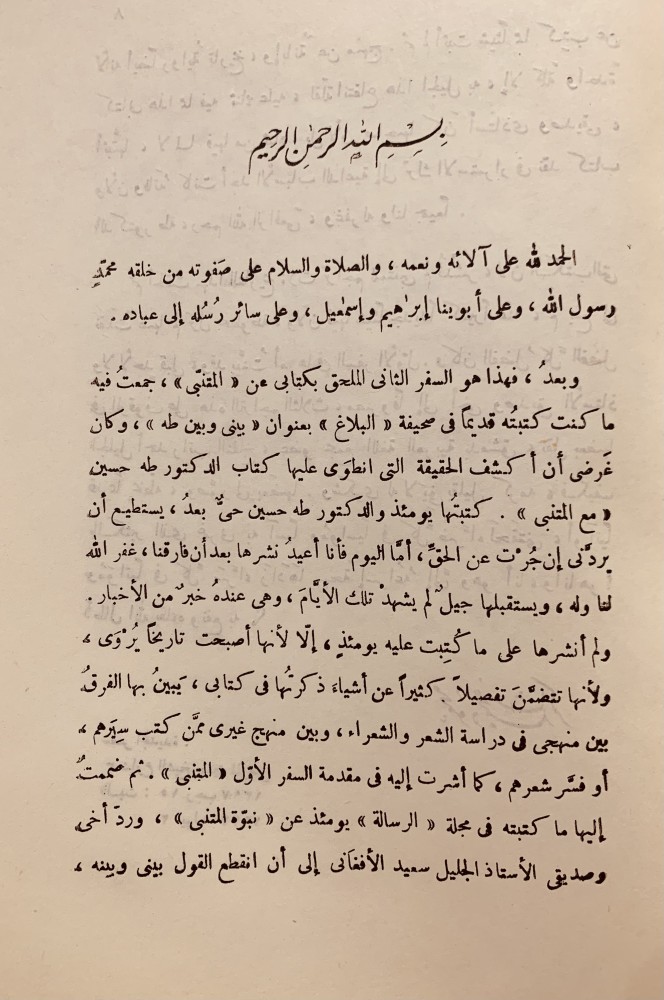 بِسْمِ اللهِ الرحمٰنِ الرحيم
الحمد لله على آلائه ونعمه ، والصلاة والسلام على صَفوته من خلقه محمّدٍ
رسول الله ، وعلى أبوينا إبرٰهيم وإسمٰعيل ، وعلى سائر رُسُله إلى عباده .
وبعدُ ، فهذا هو السفر الثانى الملحق بكتابى عن « المتنبّى » ، جمعتُ فيه
ما كنت كتبتُه قديماً فى صحيفة « البلاغ » بعنوان « بينى وبين طه » ، وكان
غَرضى أن أكشف الحقيقة التى انطوَى عليها كتاب الدكتور طه حسين
« مع المتنبى » . كتبتُها يومئذ والدكتور طه حسين حىٌّ بعدُ ، يستطيع أن
يردَّنى إن جُرْت عن الحقِّ ، أمَّا اليوم فأنا أعيدُ نشرها بعد أن فارقنا ، غفر الله
لنا وله ، ويستقبلها جيلٌ لم يشهدْ تلك الأيَّامَ ، وهى عندهُ خبرٌ من الأخبار .
ولم أنشرها على ما كُتِبت عليه يومئذٍ ، إلّا لأنها أصبحت تاريخاً يُرْوَى ،
ولأنها تتضمَّنَ تفصيلاً كثيراً عن أشياءَ ذكرتُها فى كتابى ، يَبينُ بها الفرقُ
بين منهجى فى دراسة الشعر والشعراء ، وبين منهج غيرى ممَّن كتب سِيَرهم ،
أو فسَّر شعرهم ، كما أشرت إليه فى مقدمة السفر الأوّل « المتنبى » . ثم ضممتُ
إليها ما كتبته فى مجلة « الرسالة » يومئذ عن « نبوّة المتنبى » ، وردّ أخى
وصديقى الأستاذ الجليل سعيد الأفغانى إلى أن انقطع القول بينى وبينه ،